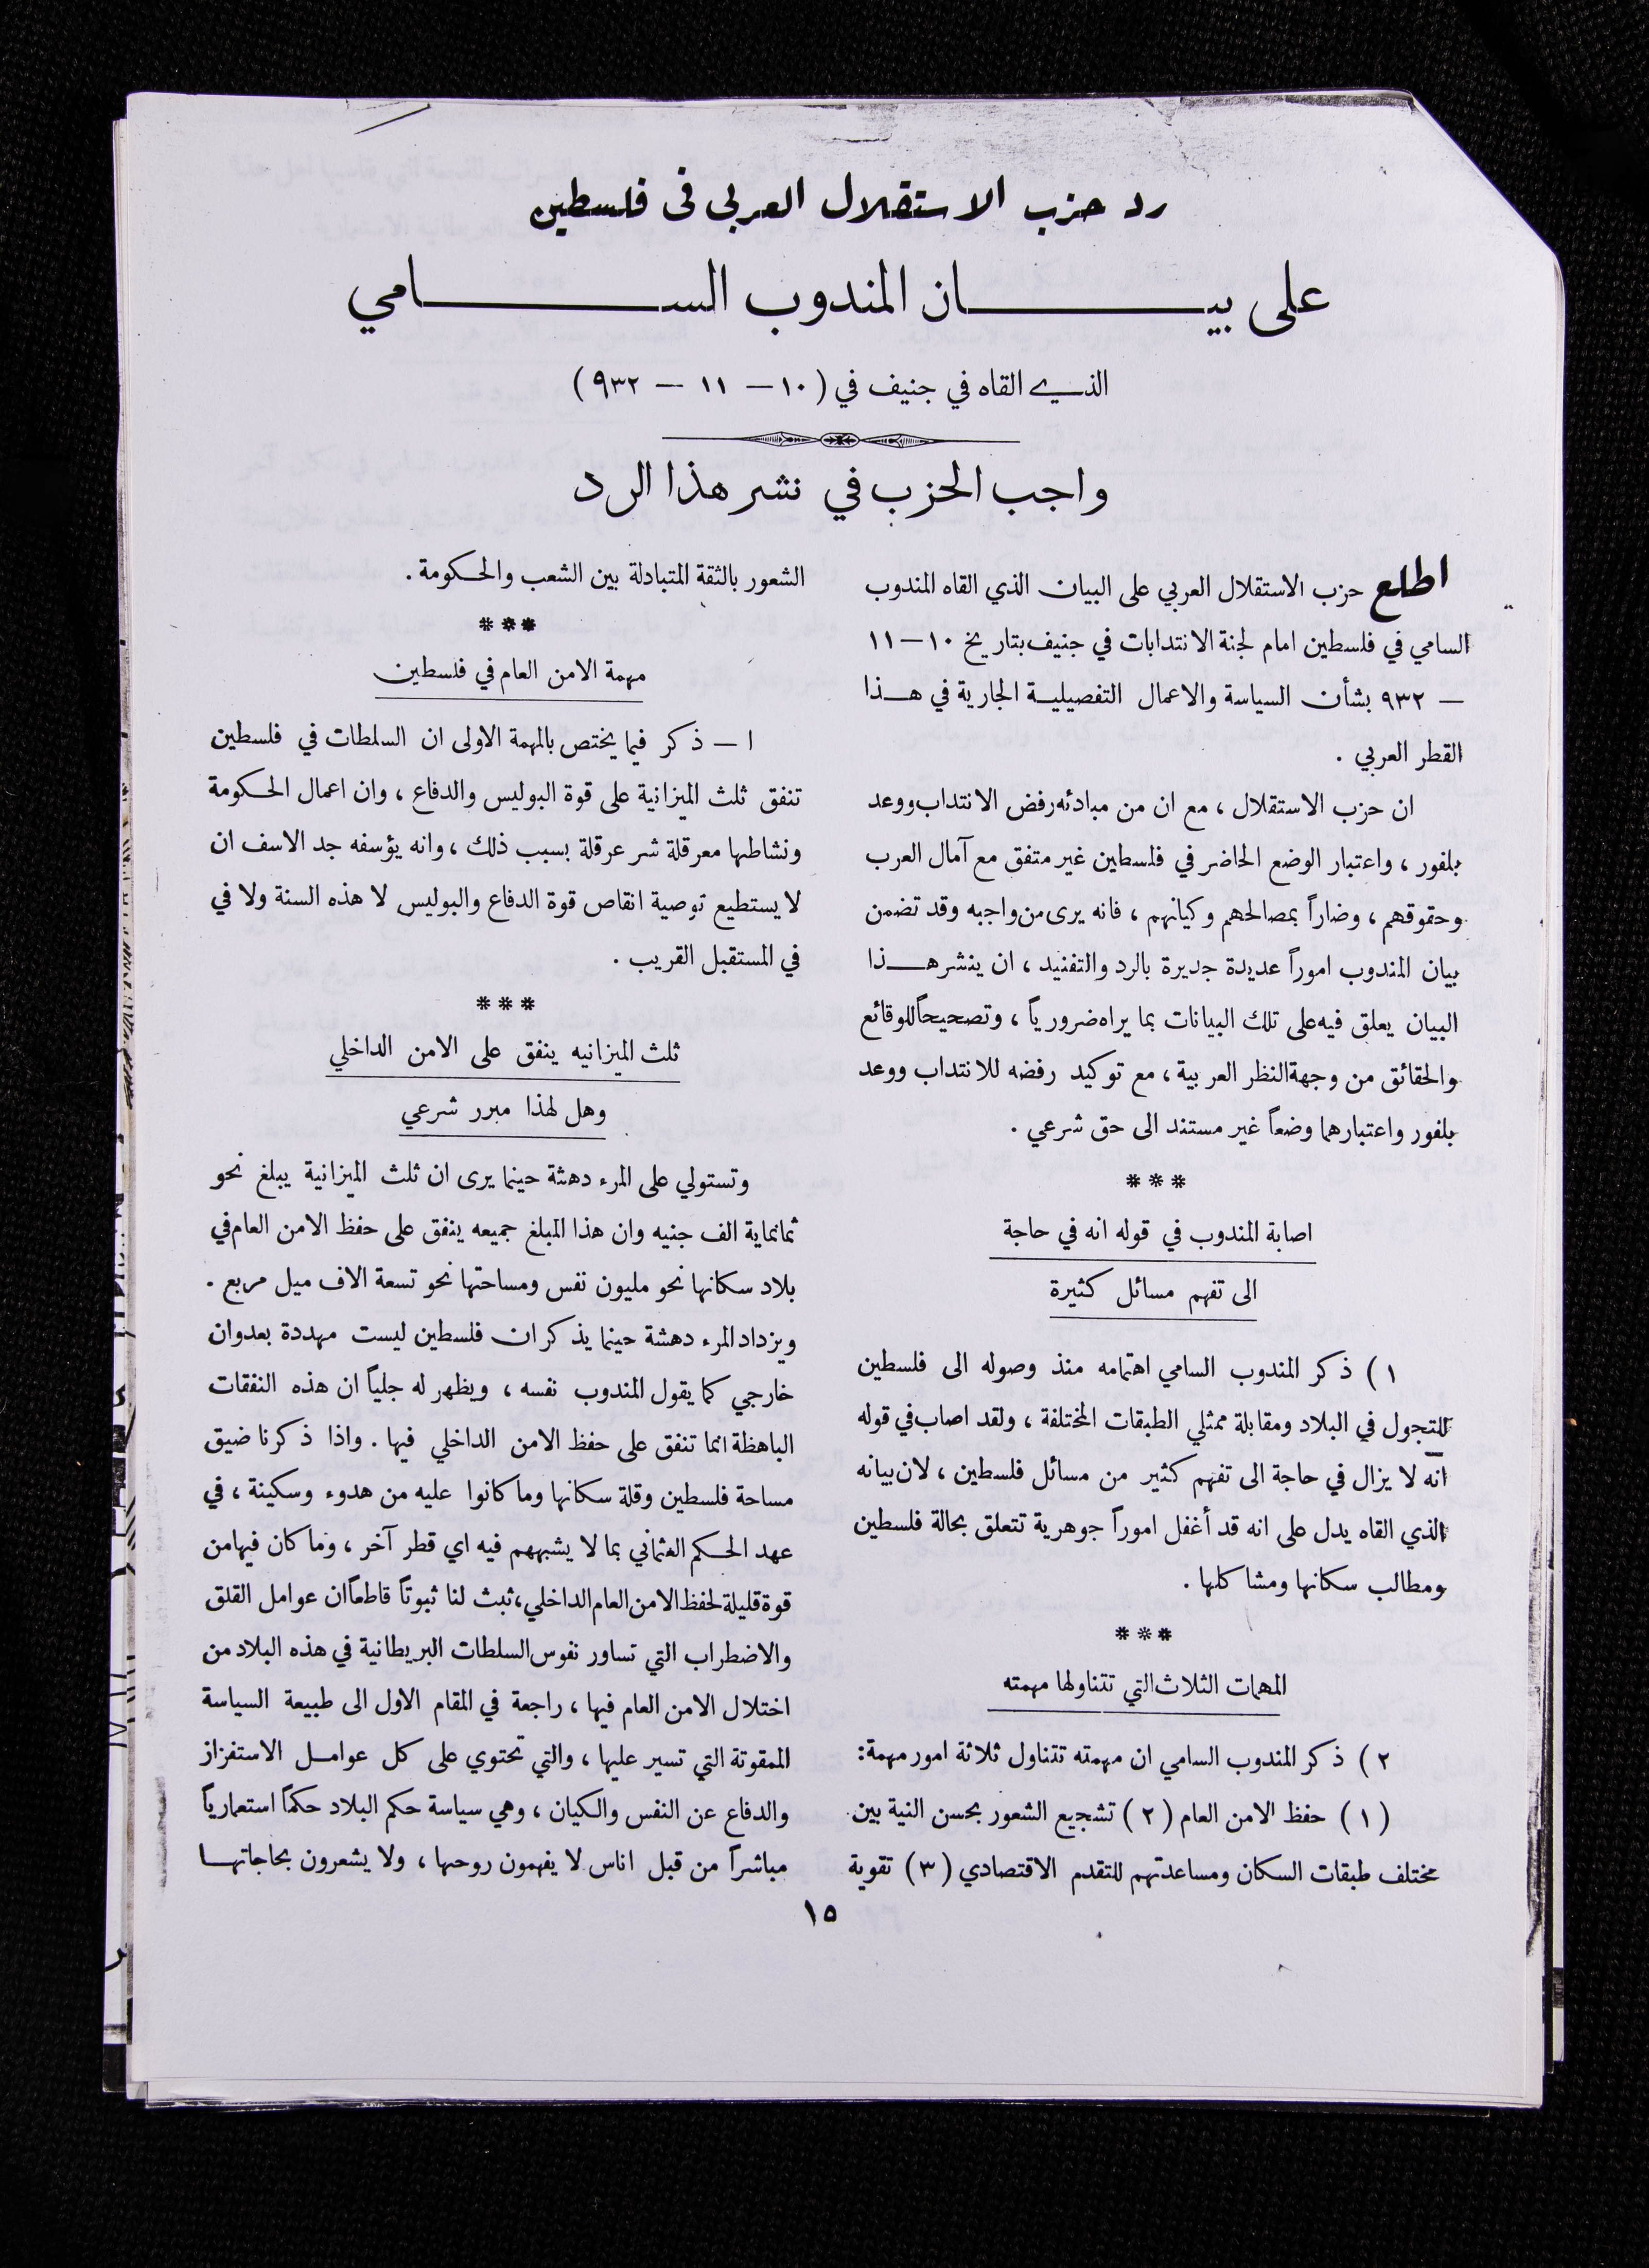 رد حزب الاستقلال العربي فى فلسطين
على بيان المندوب السامي
الذي القاه في جنيف في (١٠ — ١١ — ٩٣٢)
واجب الحزب في نشر هذا الرد
اطلع حزب الاستقلال العربي على البيان الذي القاه المندوب
السامي في فلسطين امام لجنة الانتدابات في جنيف بتاريخ ١٠ — ١١
— ٩٣٢ بشأن السياسة والاعمال التفصيلية الجارية في هذا
القطر العربي .
ان حزب الاستقلال ، مع ان من مبادئه رفض الانتداب ووعد
بلفور ، واعتبار الوضع الحاضر في فلسطين غير متفق مع آمال العرب
وحقوقهم ، وضاراً بمصالحهم وكيانهم ، فانه يرى من واجبه وقد تضمن
بيان المندوب اموراً عديدة جديرة بالرد والتفنيد ، ان ينشر هذا
البيان يعلق فيه على تلك البيانات بما يراه ضرورياً ، وتصحيحاً للوقائع
والحقائق من وجهة النظر العربية ، مع توكيد رفضه للانتداب ووعد
بلفور واعتبارهما وضعاً غير مستند الى حق شرعي .
***
اصابة المندوب في قوله انه في حاجة
الى تفهم مسائل كثيرة
١ ) ذكر المندوب السامي اهتمامه منذ وصوله الى فلسطين
للتجول في البلاد ومقابلة ممثلي الطبقات المختلفة ، ولقد اصاب في قوله
انه لا يزال في حاجة الى تفهم كثير من مسائل فلسطين ، لان بيانه
الذي القاه يدل على انه قد أغفل اموراً جوهرية تتعلق بحالة فلسطين
ومطالب سكانها ومشاكلها .
***
المهمات الثلاث التي تتناولها مهمته
٢ ) ذكر المندوب السامي ان مهمته تتناول ثلاثة امور مهمة :
( ١ ) حفظ الامن العام ( ٢ ) تشجيع الشعور بحسن النية بين
مختلف طبقات السكان ومساعدتهم للتقدم الاقتصادي ( ٣ ) تقوية
الشعور بالثقة المتبادلة بين الشعب والحكومة .
***
مهمة الامن العام في فلسطين
ا — ذكر فيما يختص بالمهمة الاولى ان السلطات في فلسطين
تنفق ثلث الميزانية على قوة البوليس والدفاع ، وان اعمال الحكومة
ونشاطها معرقلة شر عرقلة بسبب ذلك ، وانه يؤسفه جد الاسف ان
لا يستطيع توصية انقاص قوة الدفاع والبوليس لا هذه السنة ولا في
في المستقبل القريب .
***
ثلث الميزانيه ينفق على الامن الداخلي
وهل لهذا مبرر شرعي
وتستولي على المرء دهشة حينما يرى ان ثلث الميزانية يبلغ نحو
ثمانماية الف جنيه وان هذا المبلغ جميعه ينفق على حفظ الامن العام في
بلاد سكانها نحو مليون نفس ومساحتها نحو تسعة الاف ميل مربع .
ويزداد المرء دهشة حينما يذكر ان فلسطين ليست مهددة بعدوان
خارجي كما يقول المندوب نفسه ، ويظهر له جلياً ان هذه النفقات
الباهظة انما تنفق على حفظ الامن الداخلي فيها . واذا ذكرنا ضيق
مساحة فلسطين وقلة سكانها وما كانوا عليه من هدوء وسكينة ، في
عهد الحكم العثماني بما لا يشبههم فيه اي قطر آخر ، وما كان فيها من
قوة قليلة لحفظ الامن العام الداخلي ، ثبث لنا ثبوتاً قاطعاً ان عوامل القلق
والاضطراب التي تساور نفوس السلطات البريطانية في هذه البلاد من
اختلال الامن العام فيها ، راجعة في المقام الاول الى طبيعة السياسة
الممقوتة التي تسير عليها ، والتي تحتوي على كل عوامل الاستفزاز
والدفاع عن النفس والكيان ، وهي سياسة حكم البلاد حكماً استعمارياً
مباشراً من قبل اناس لا يفهمون روحها ، ولا يشعرون بحاجاتها
١٥